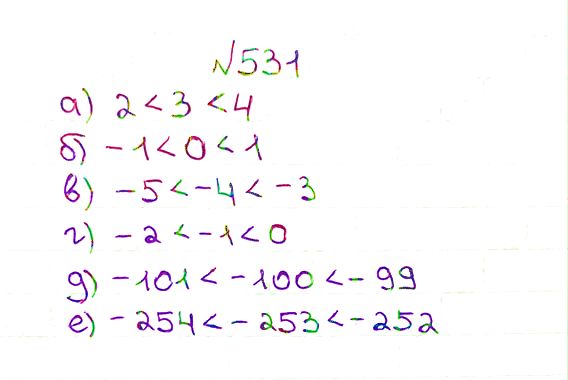 №531
а) 2 < 3 < 4
б) - 1 < 0 < 1
в) - 5 < - 4 < - 3
г) - 2 < - 1 < 0
д) - 101 < - 100 < - 99
е) - 254 < - 253 < - 252